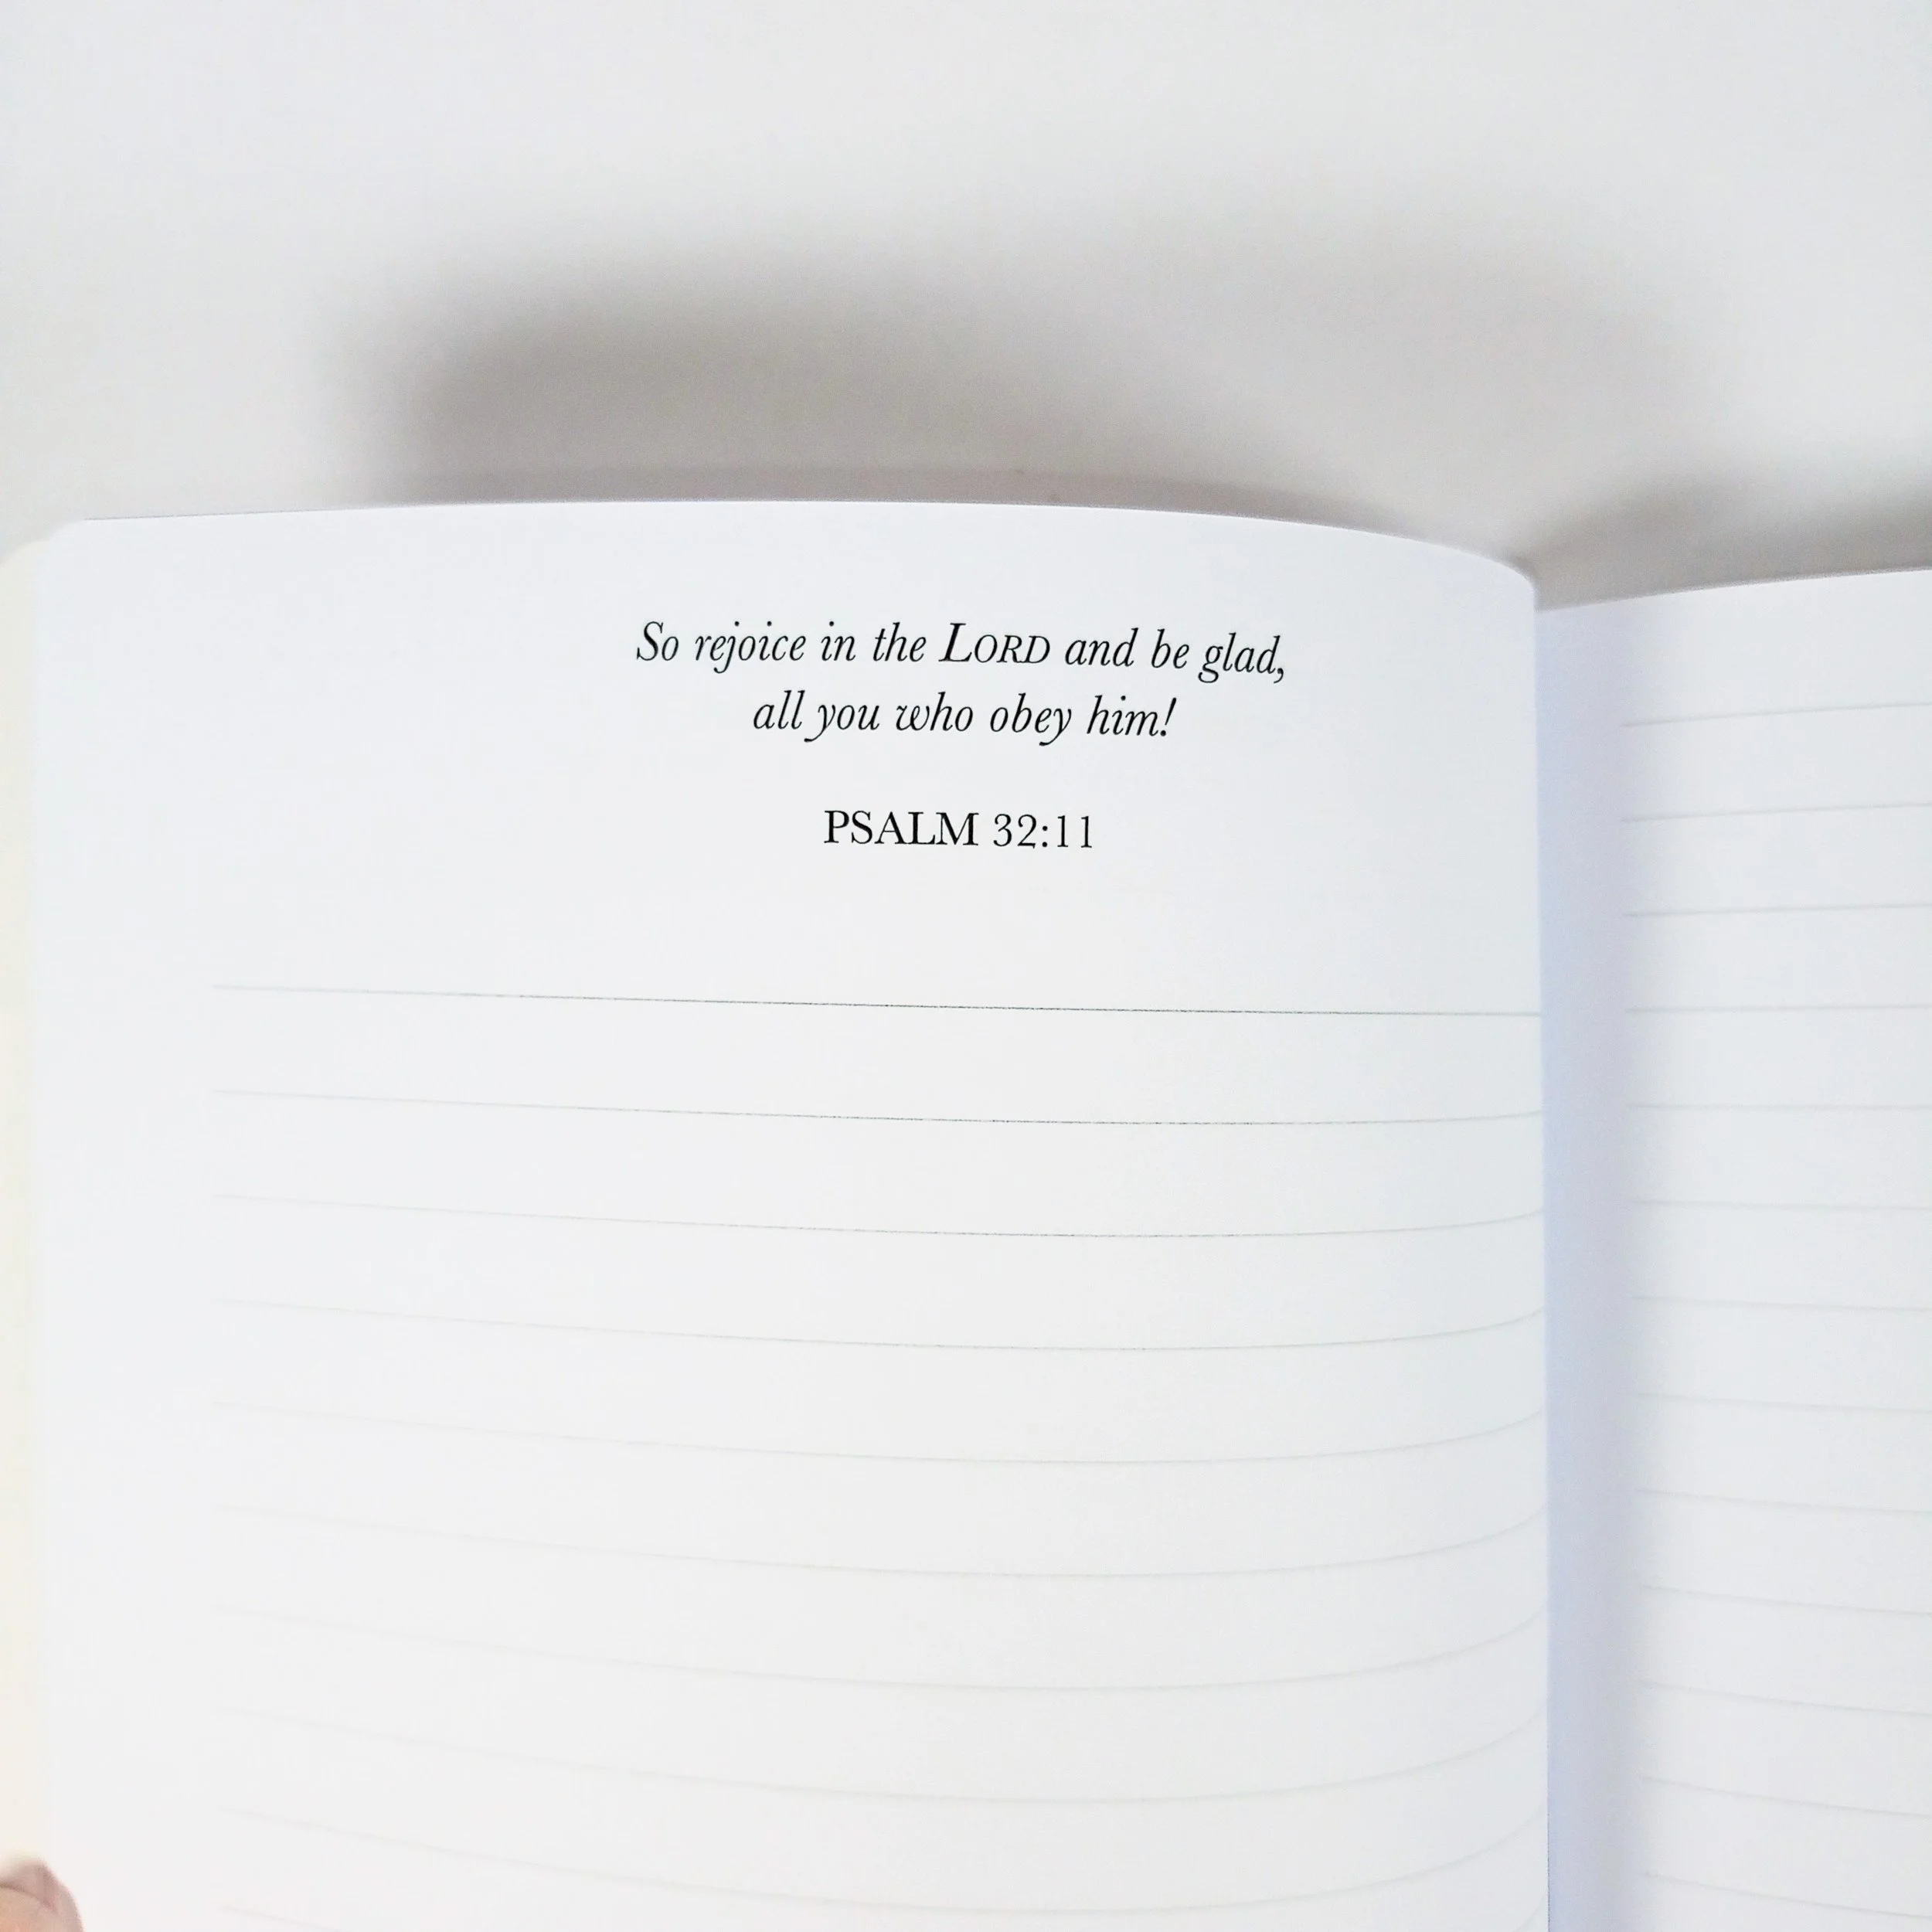 So rejoice in the LORD and be glad,
all you who obey him!
PSALM 32:11